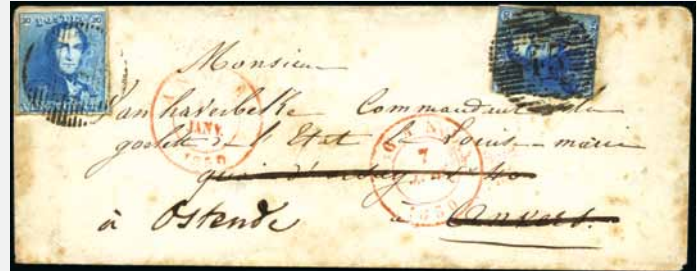 Monsieur
Van haverbeke Commandant de la
goelette de l'Etat la Louise-marie
quai d'orsay n° 40
à Ostende à Anvers.
JANV.
1850
7
1850
20 20